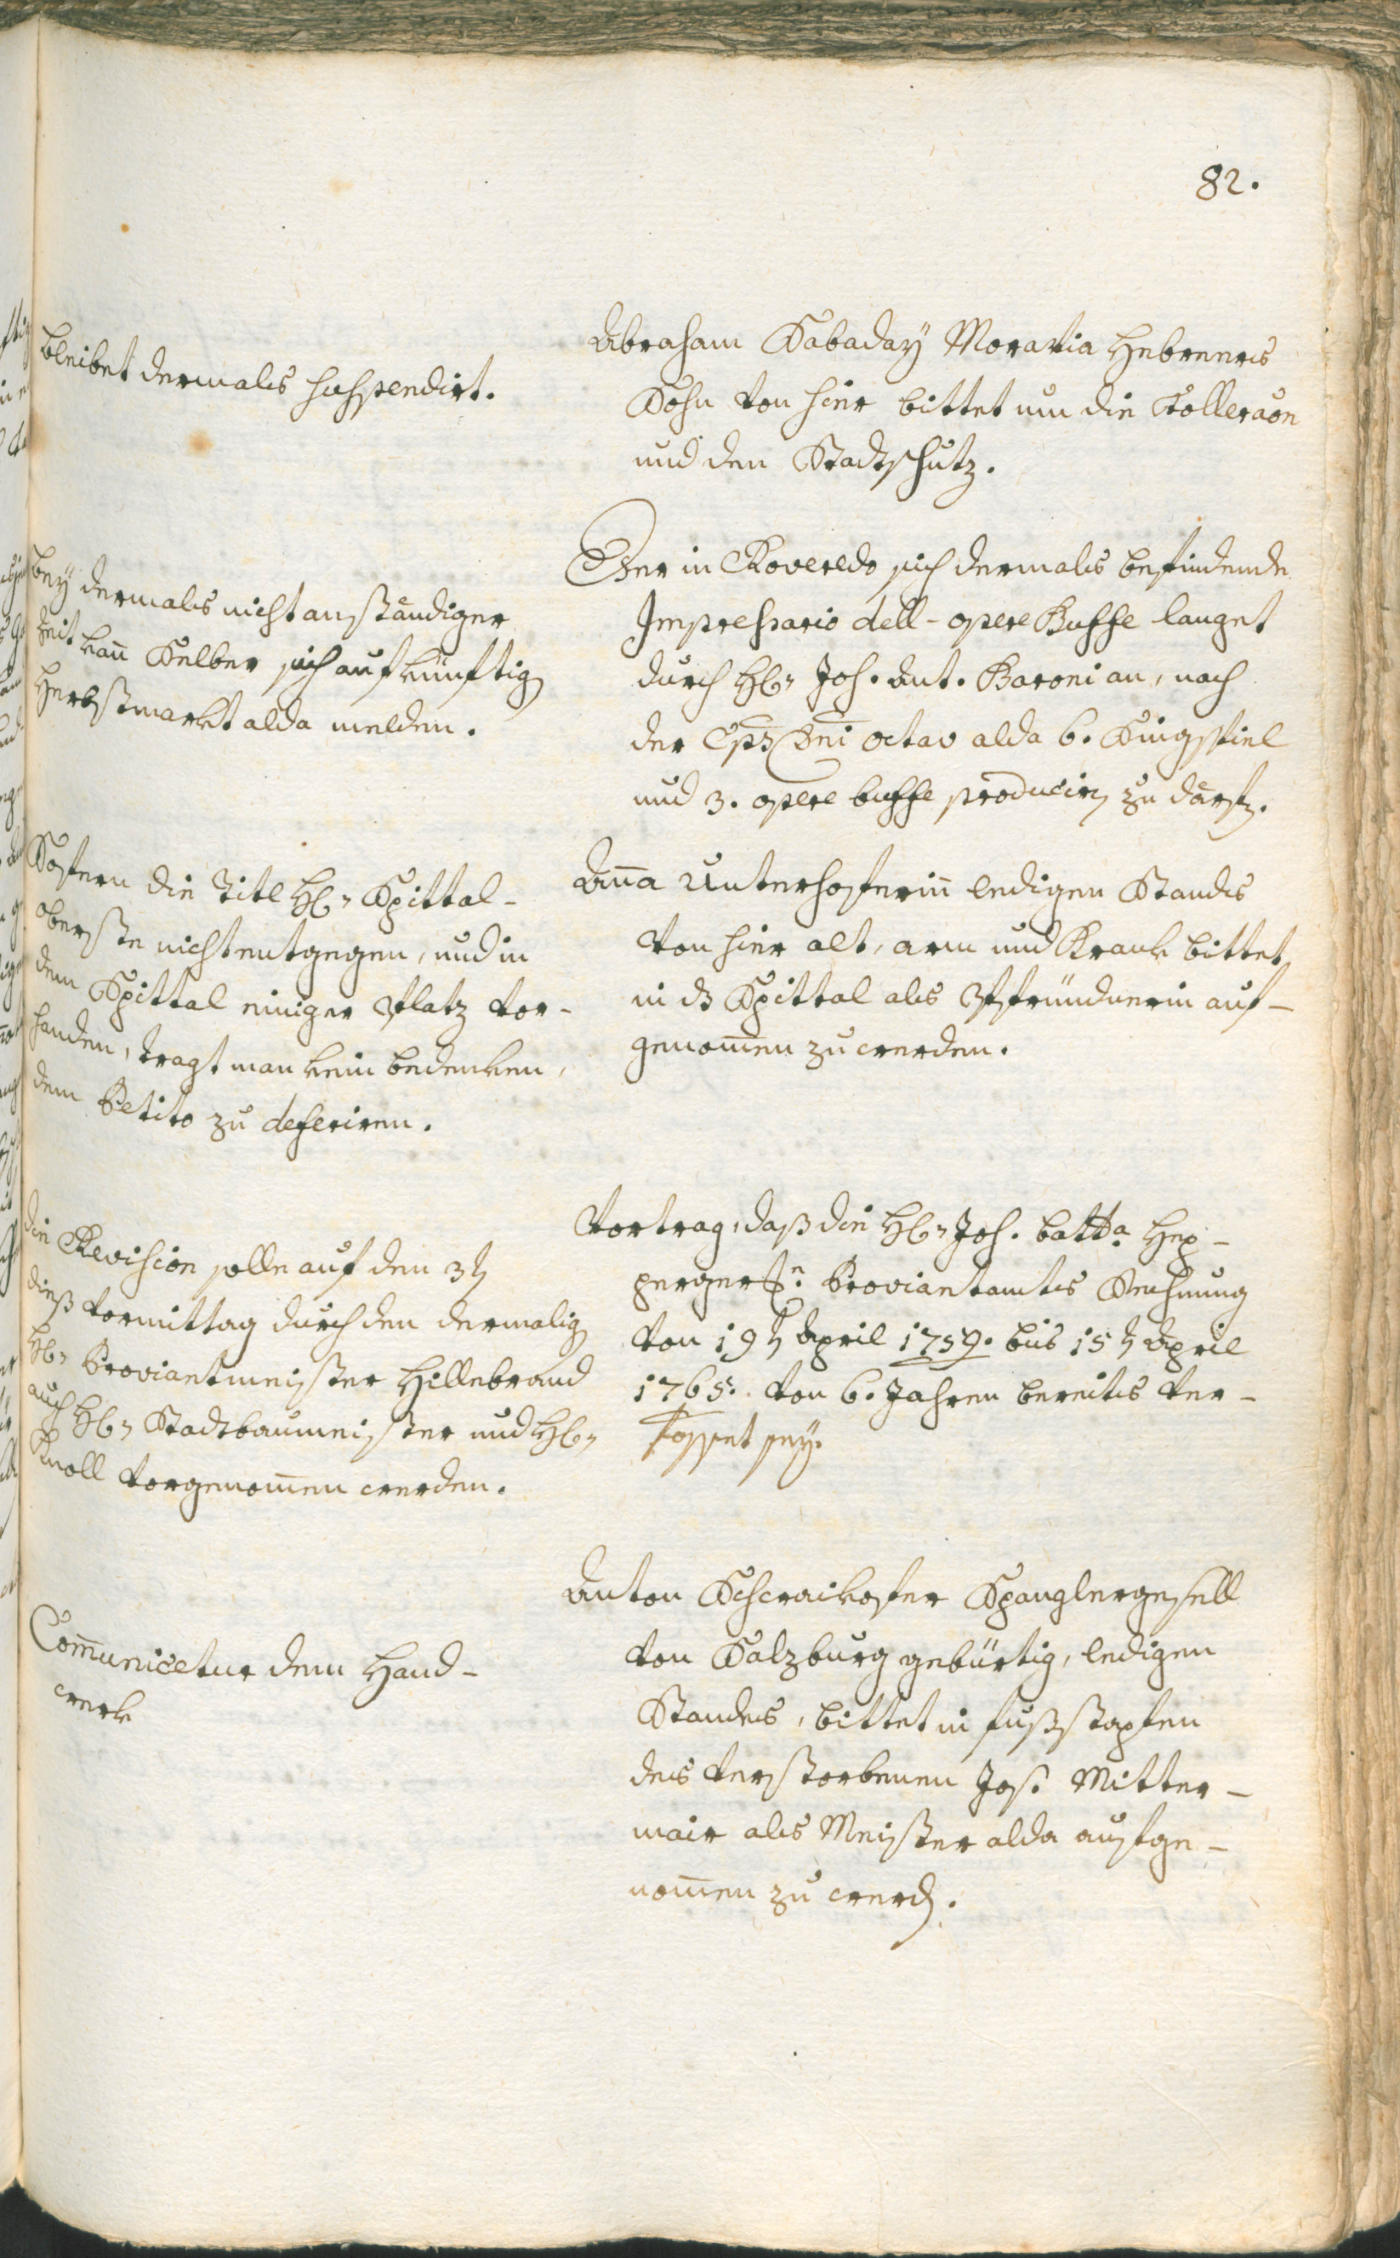 82.
bleibet dermals suspendirt.
Abraham Sabaday Moravia Hebreners
Sohn von hier bittet um die Tolleraõn
und den Stadtschutz.
bey dermals nicht anständiger
Zeit kan̄ Selber sich auf künftig
Herbstmarkt alda melden.
Der in Roveredo sich dermals befindende
Impressario dell-opere Buffe langet
durch H: Joh. Ant. Baroni an, nach
der Octav alda 6. Singspiel
und 3. opere buffe producirn zu därfn.
Sofern die Titl H: Spittal-
oberste nicht entgegen, und in
dem Spittal einiger Platz vor-
handen, tragt man kein bedenken,
dem Petito zu deferiren.
Anna Unterhoferin ledigen Stands
von hier alt, arm und Krank bittet
in ds Spittal als Pfründnerin auf-
genom̄en zu werden.
die Revision solle auf den 3tn
dieß vormittag durch den dermalign
H: Proviantmeister Hillebrand
auch H: Stadtbaumeister und H:
Knoll vorgenom̄en werden.
Vortrag, daß die H: Joh. batta Hep-
perger Proviantamts Rechnung
von 19tn April 1759. bis 15tn April
1765. von 6. Jahren bereits ver-
fasset sey.
Com̄unicetur dem Hand-
werk
Anton Schwaikofer Spanglergesell
von Salzburg gebürtig, ledigen
Standes, bittet in fußstapfen
des verstorbenen Jos. Mitter-
mair als Meister alda aufge-
nom̄en zu werdn.